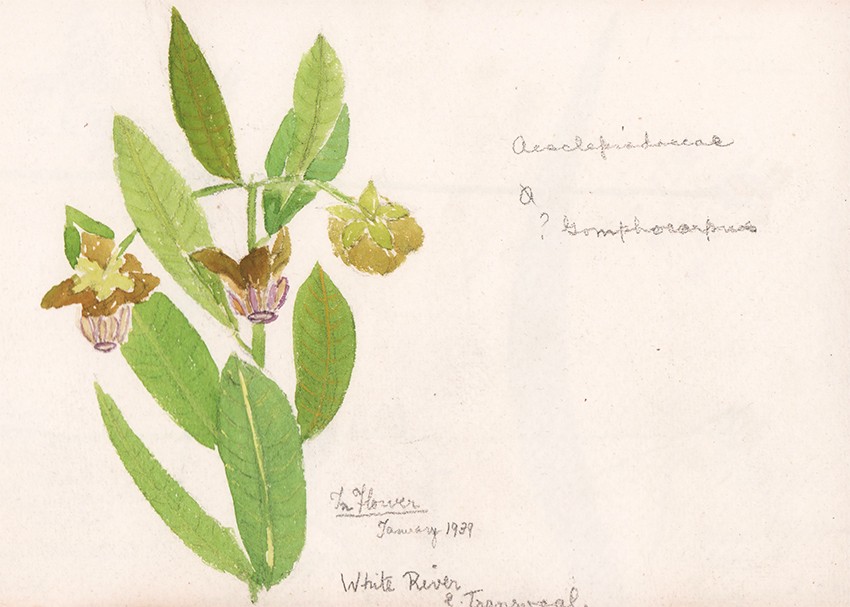 Aesclepiadaceae
? Gomphocarpus
In Flower
January 1939
White River
E. Transvaal.